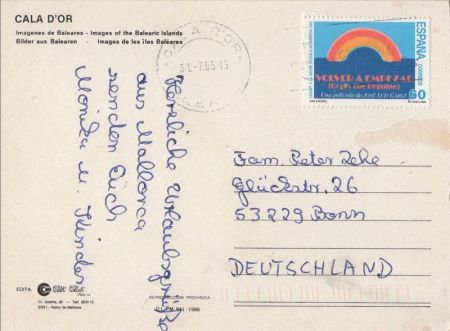 CALA D'OR
Imágenes de Baleares - Images of the Balearic Islands
Bilder aus Balearen - Images de les îles Baléares
CALA D'OR
31.-7.95-15
VOLVER A EMPEZAR
(Begin the Beguine)
Una película de JOSÉ LUIS GARCI
ESPAÑA
CORREOS
60
Herzliche Urlaubsgrüße
aus Mallorca
senden Euch
Monika u. Kinder
Fam. Peter Zehe
Glückstr. 26
53229 Bonn
DEUTSCHLAND
EDITA
REPRODUCCION PROHIBIDA
07001 - Palma de Mallorca